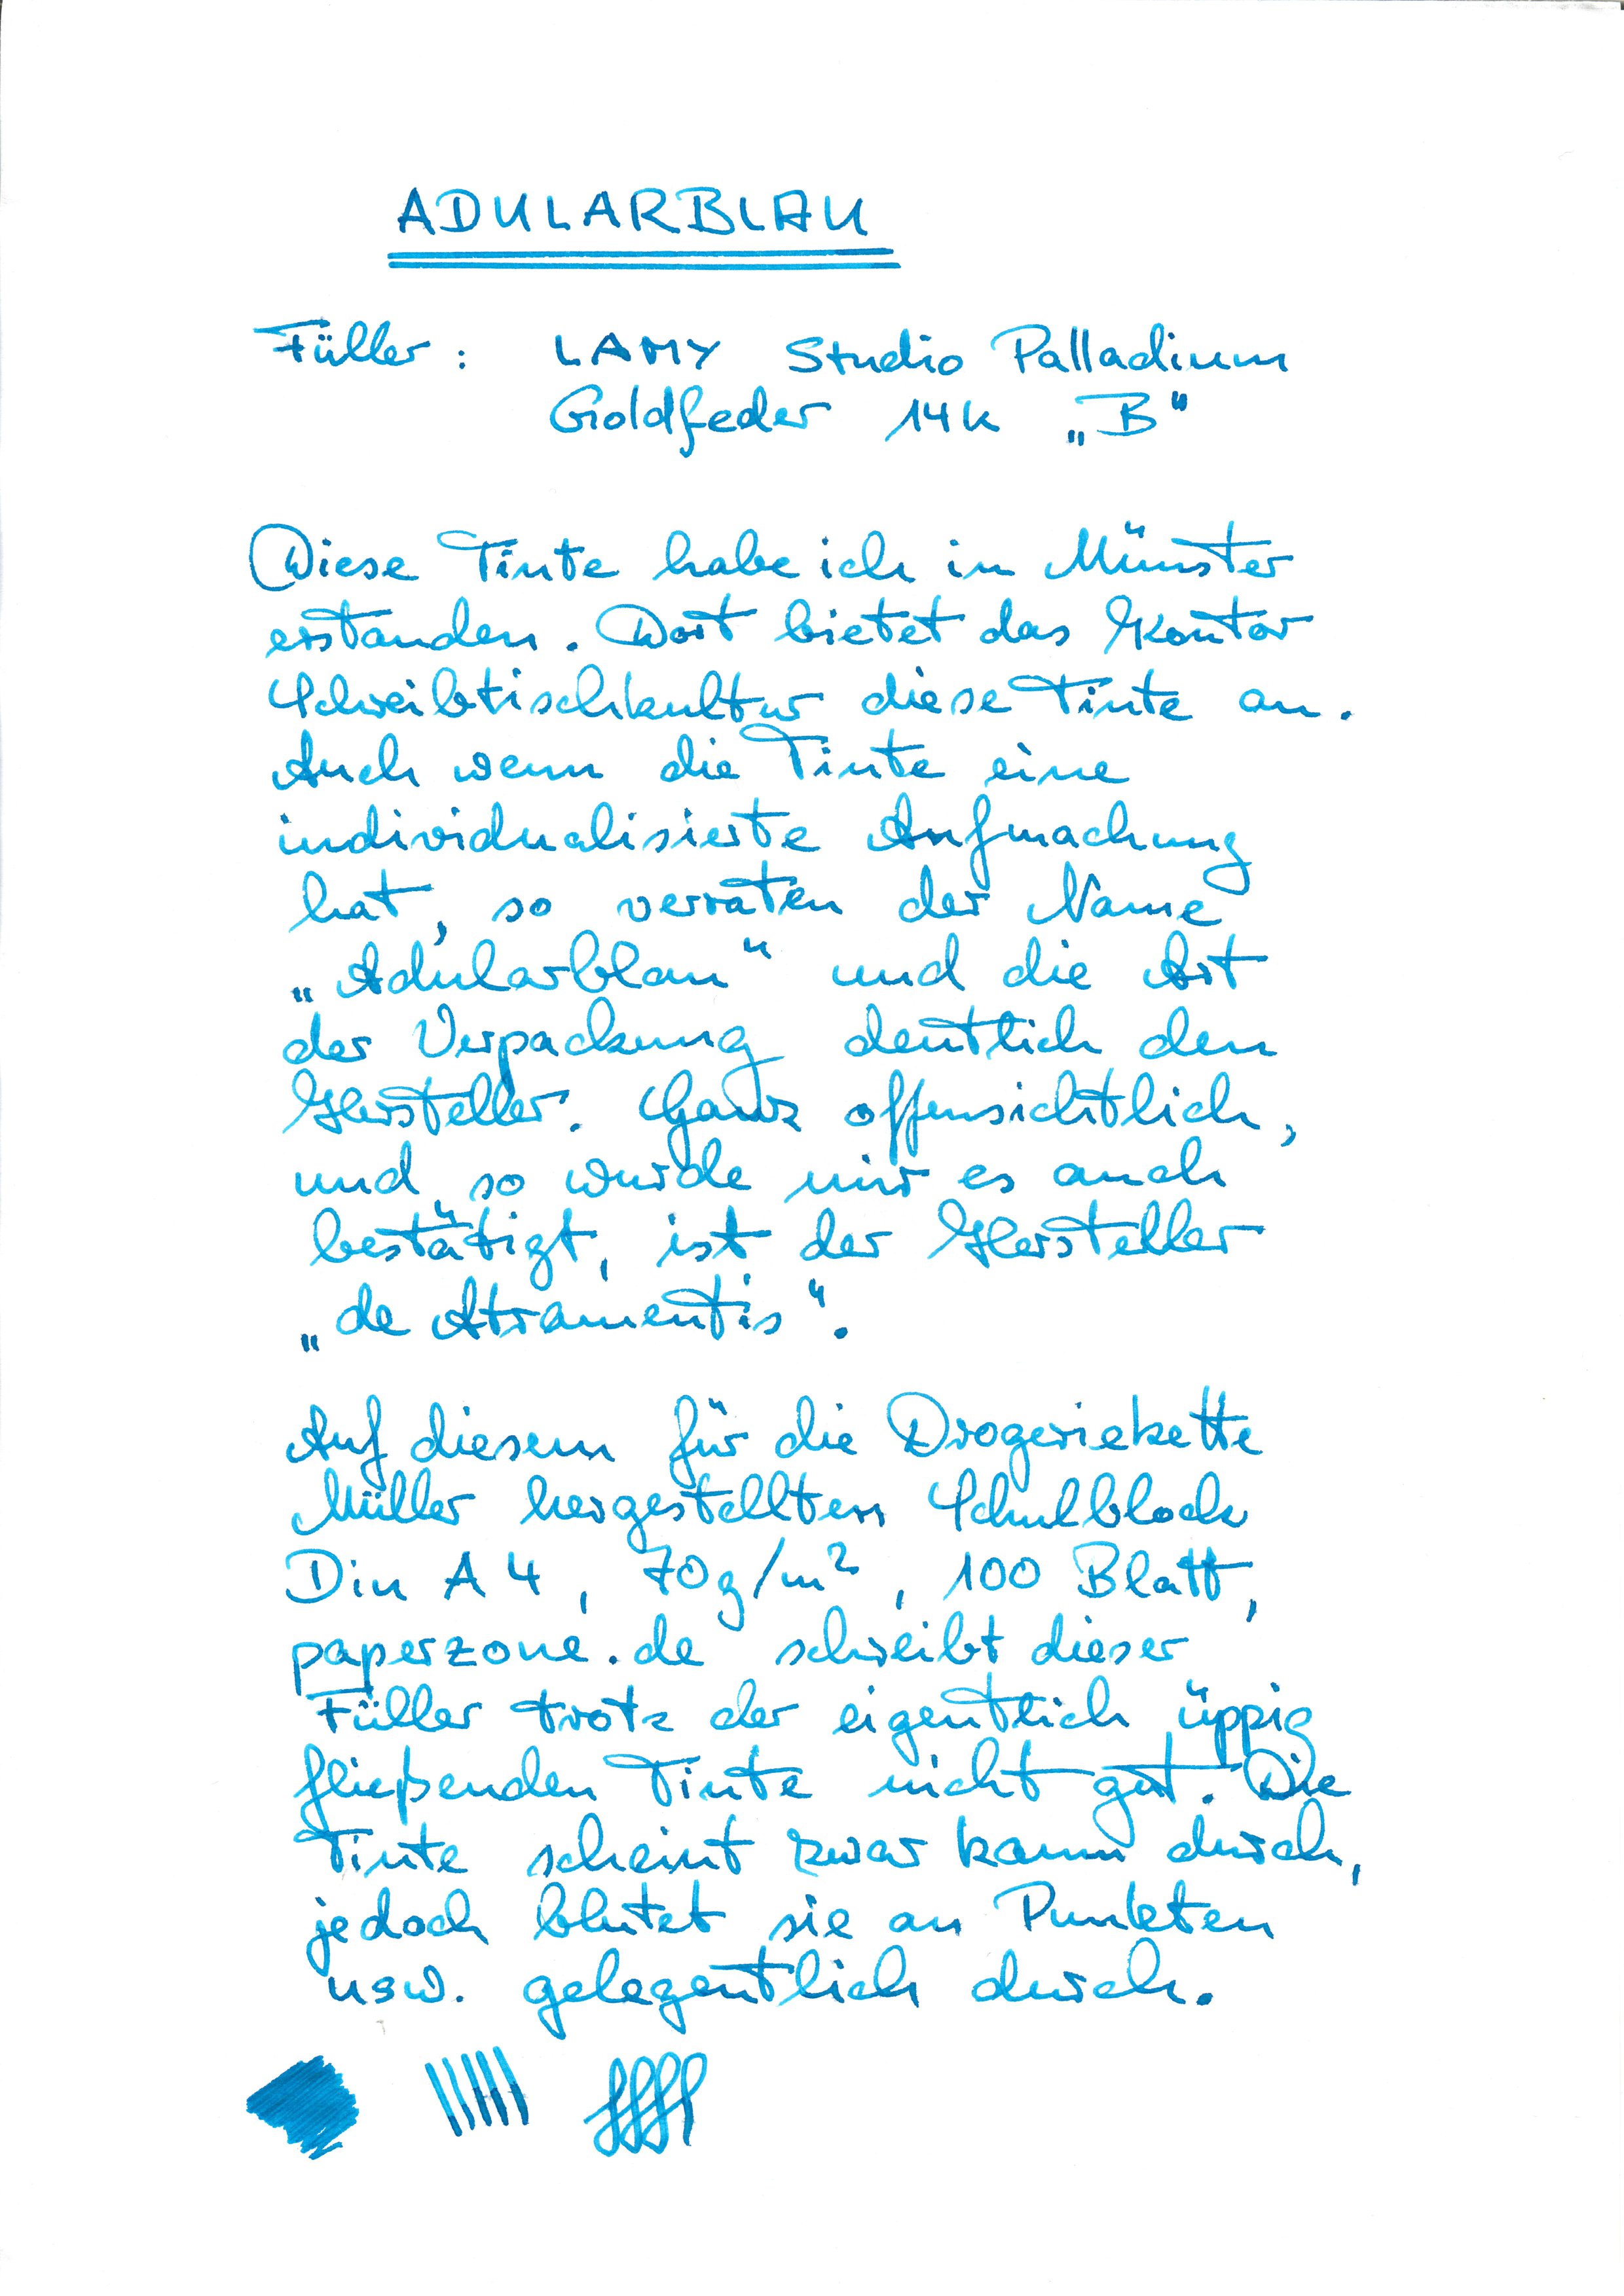 ADULARBLAU
Füller: LAMY Studio Palladium
Goldfeder 14k „B“
Diese Tinte habe ich in Münster
erstanden. Dort bietet das Kontor
Schreibtischkultur diese Tinte an.
Auch wenn die Tinte eine
individualisierte Aufmachung
hat, so verraten der Name
„Adularblau“ und die Art
der Verpackung deutlich den
Hersteller. Ganz offensichtlich,
und so wurde mir es auch
bestätigt, ist der Hersteller
„de Atramentis“.
Auf diesem für die Drogeriekette
Müller hergestellten Schulblock
Din A4, 70g/m², 100 Blatt,
paperzone.de schreibt dieser
Füller trotz der eigentlich üppig
fließenden Tinte nicht gut. Die
Tinte scheint zwar kaum durch,
jedoch blutet sie an Punkten
usw. gelegentlich durch.